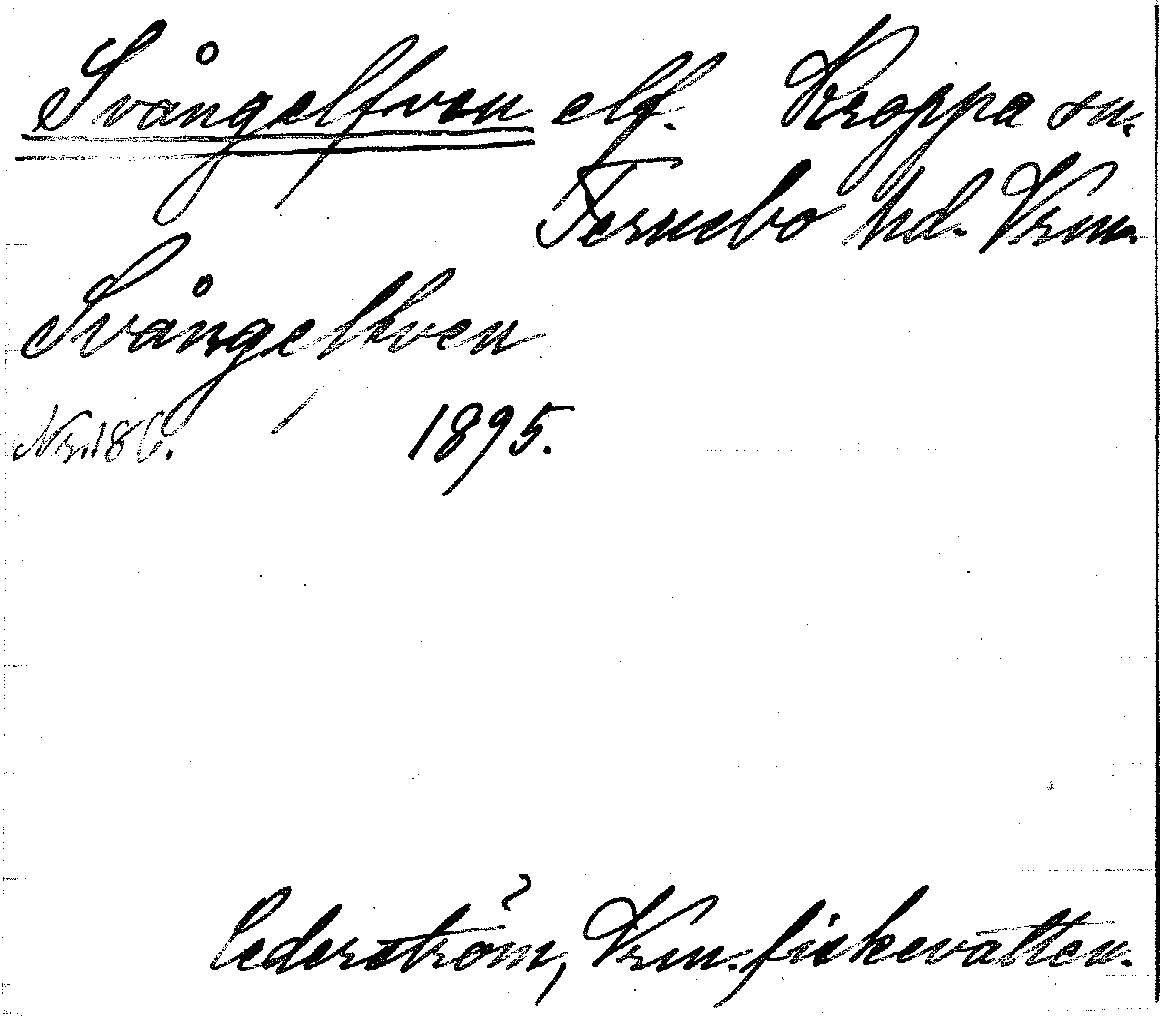 Svångelfven elf. Kroppa sn.
Fernebo hd. Vrm.
Svångelfven
Nr. 186. 1895.
Cederström, Vrm. fiskevatten.